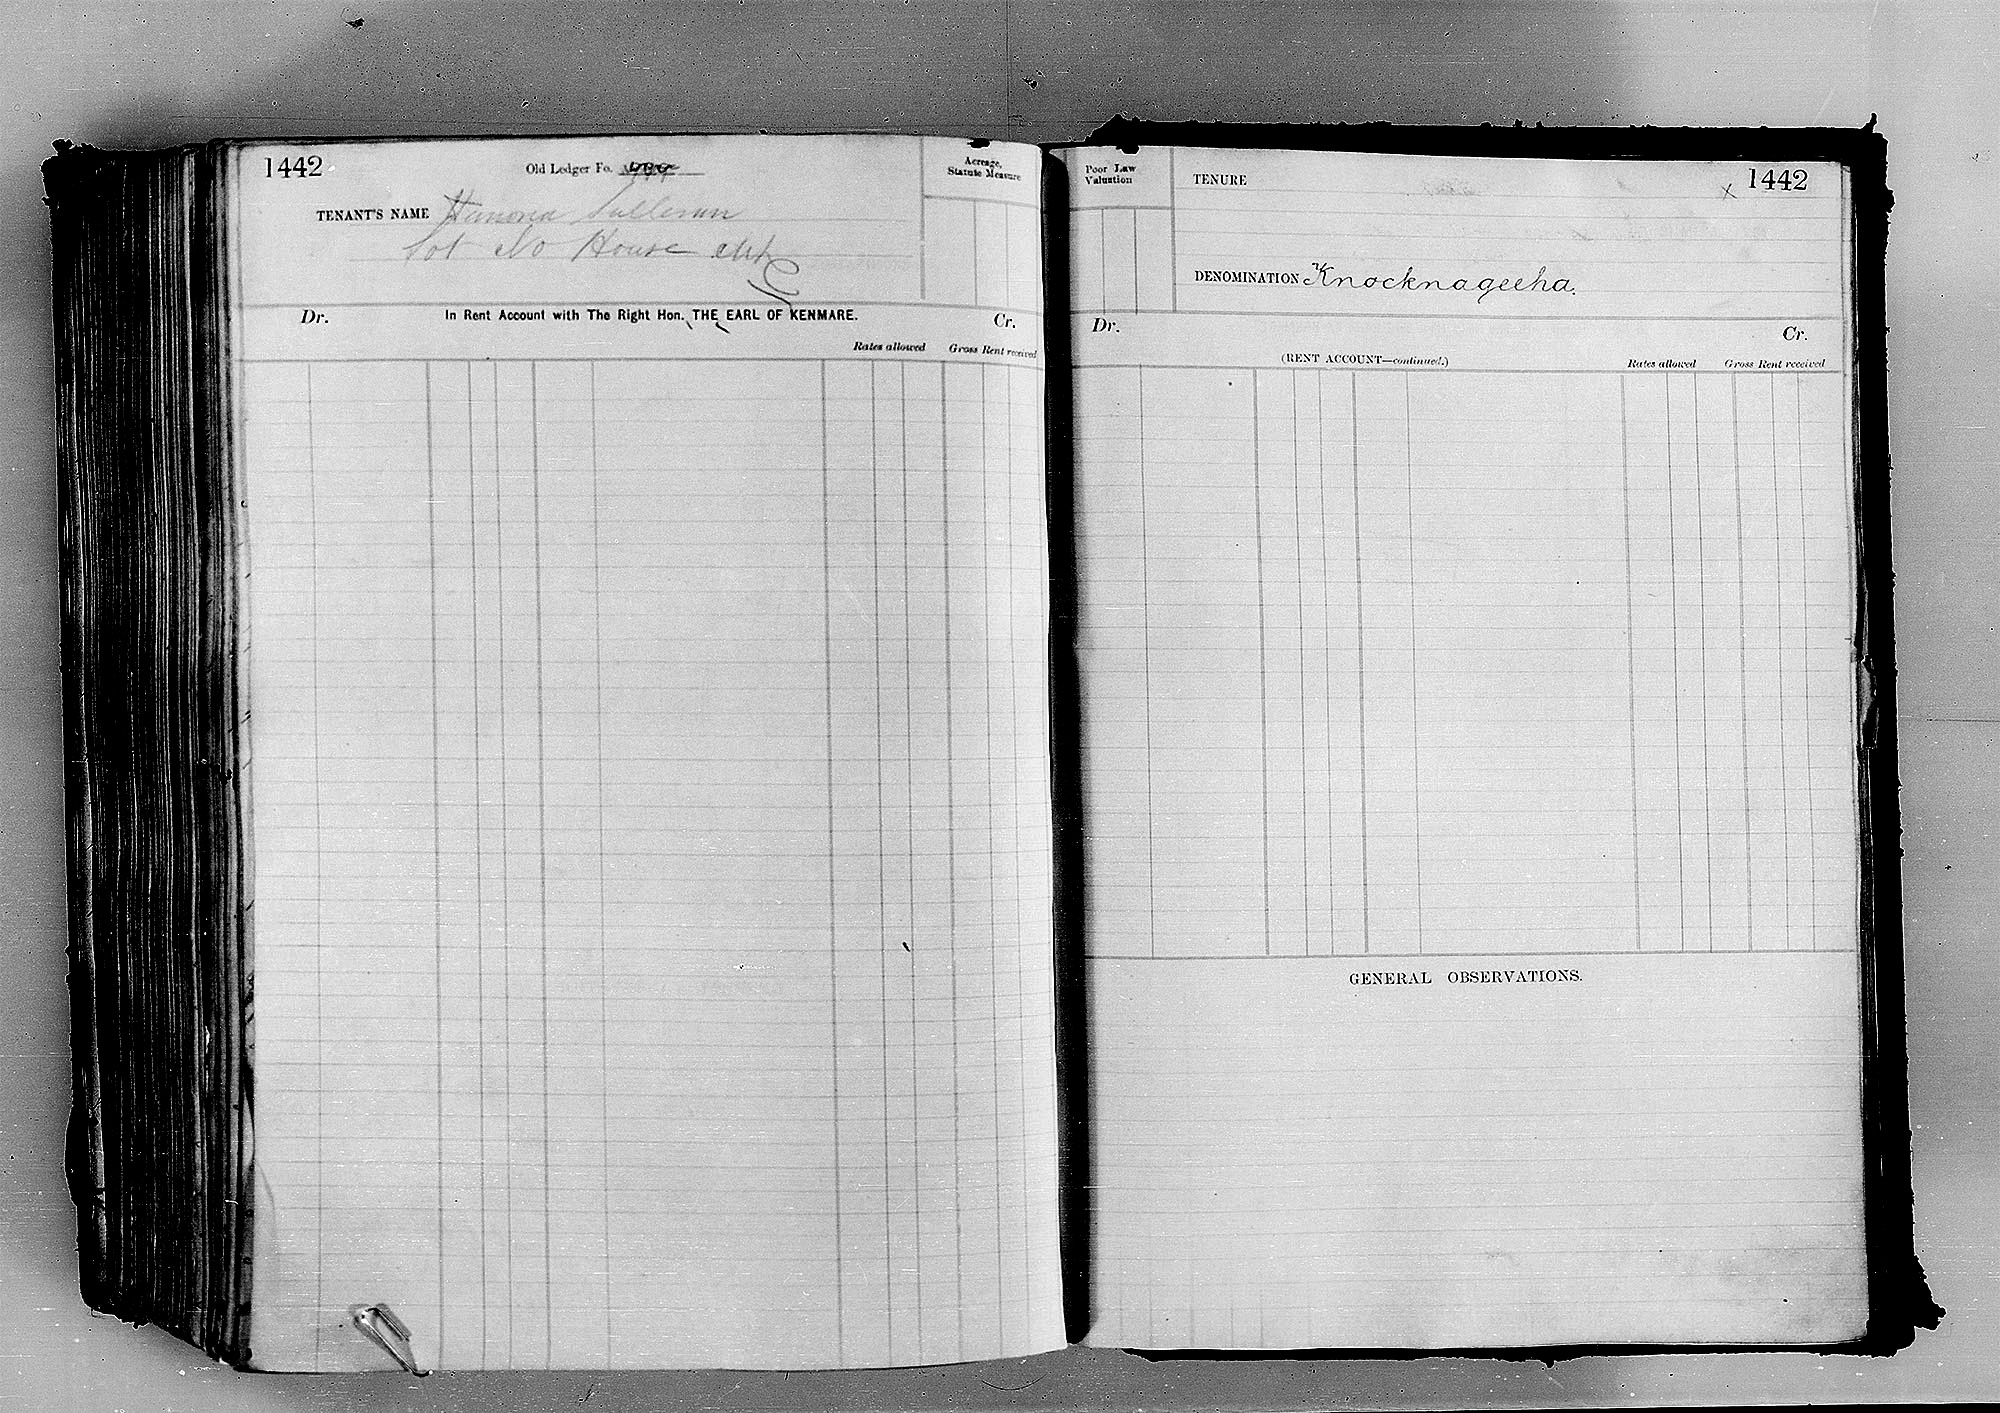 1442
Old Ledger Fo.
Acreage,
Statute Measure
TENANT'S NAME Hanora Sullivan
Lot No House
Dr. In Rent Account with The Right Hon. THE EARL OF KENMARE. Cr.
Rates allowed Gross Rent received
Poor Law
Valuation
TENURE
x 1442
DENOMINATION Knocknageeha.
Dr. Cr.
(RENT ACCOUNT—continued.) Rates allowed Gross Rent received
GENERAL OBSERVATIONS.